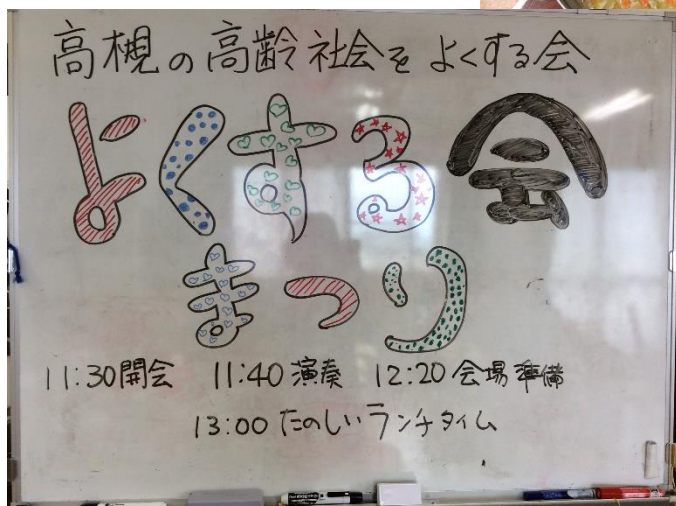 高槻の高齢社会をよくする会
よくする会
まつり
11:30開会 11:40演奏 12:20会場準備
13:00たのしいランチタイム